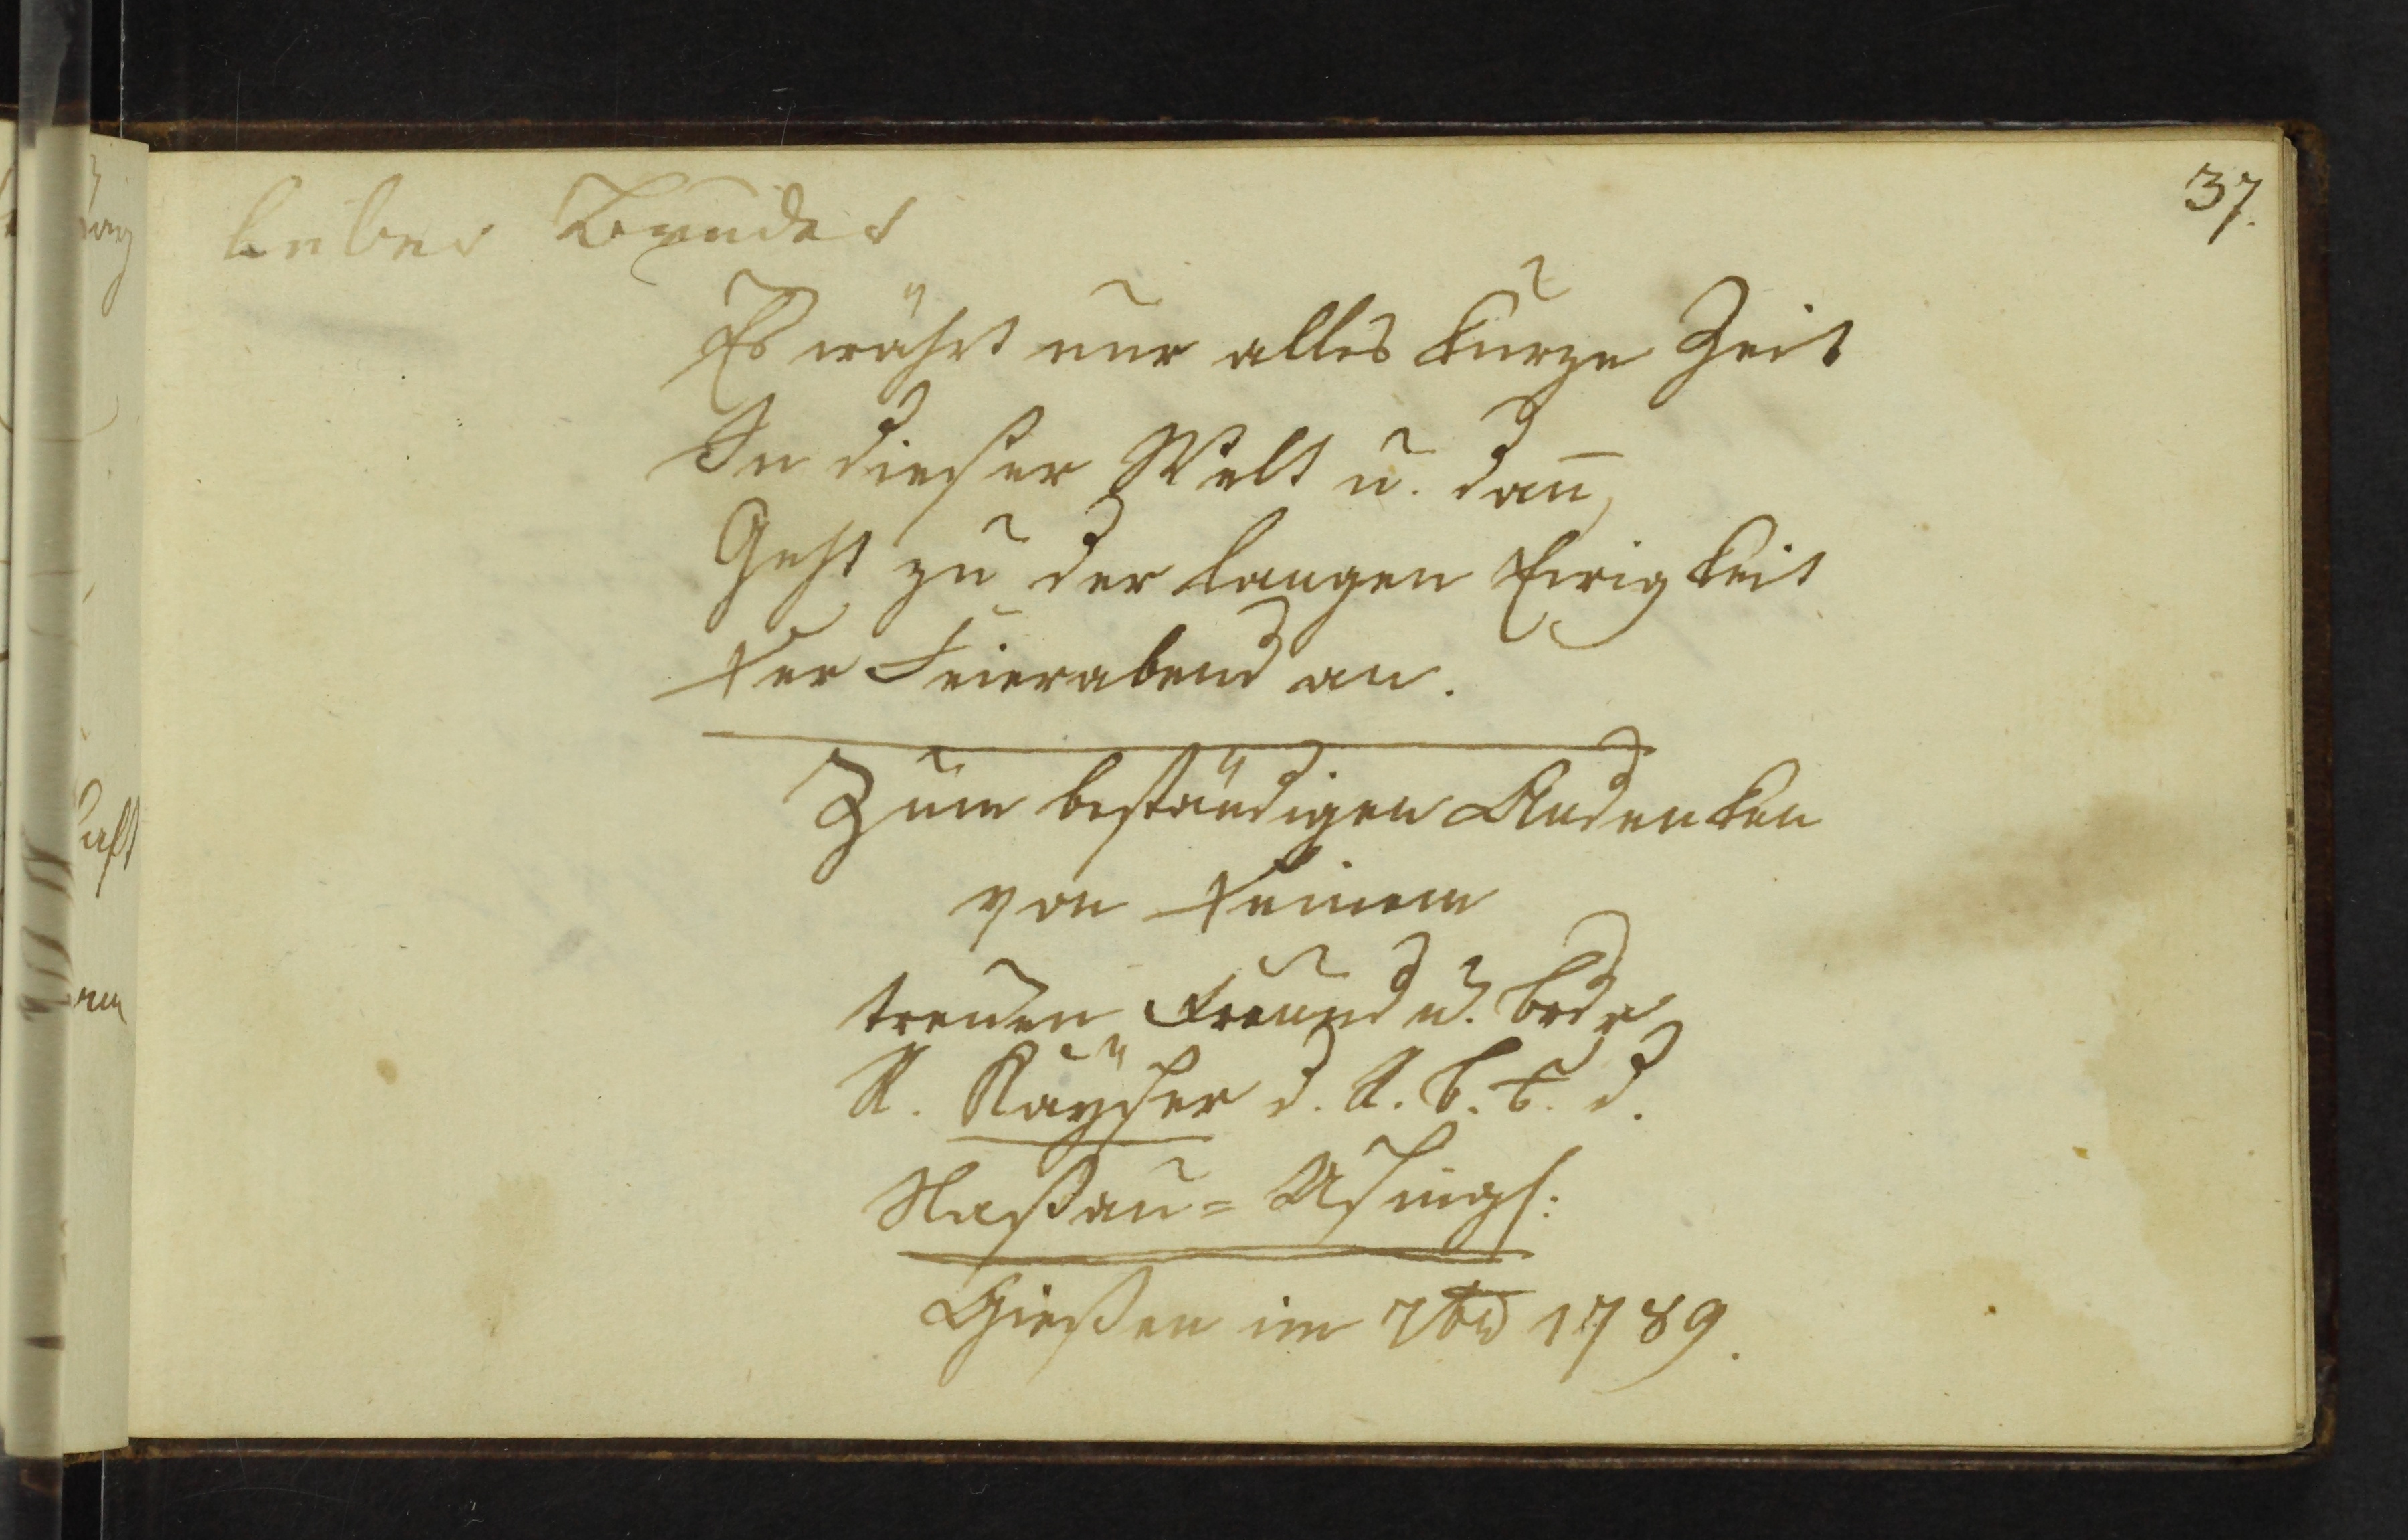 37.
lieber Bruder
Es währt nur alles kurze Zeit
In dießer Welt u. dan̄,
Geht zu der langen Ewigkeit
Der Feierabend an.
Zum beständigen Andenken
von Deinem
treuen Freund u. brdr
K. Kayßer d. R. b. C. d.
Naßau=Usings:
Gießen im 7br 1789.